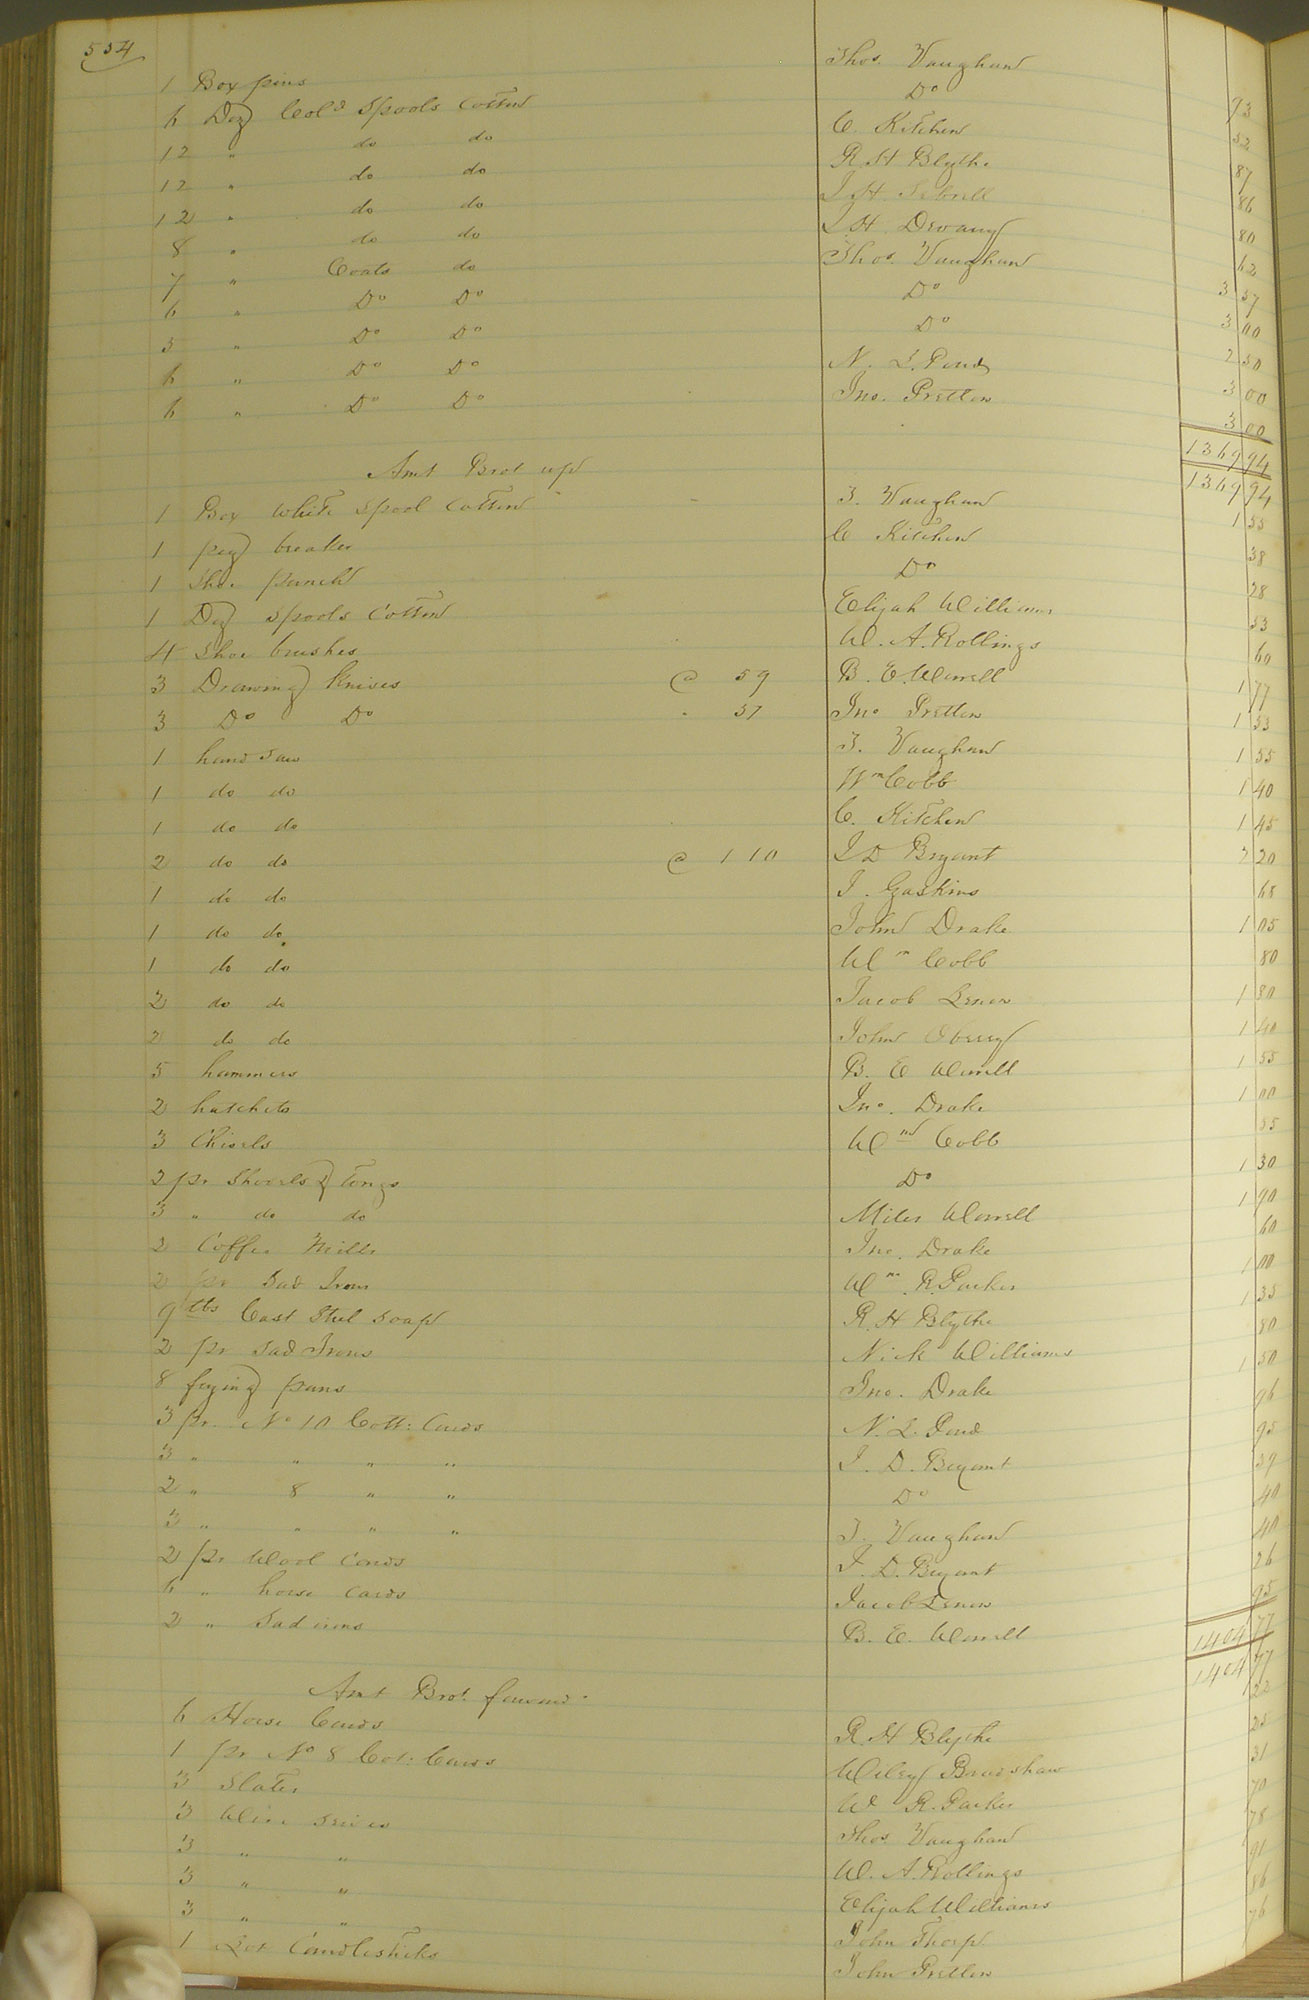 554
1 Box pins Thos. Vaughan 93
6 Doz Cold Spools Cotton Do 52
12 " do do C. Kitchen 87
12 " do do R H Blythe 86
12 " do do J H Sebrell 80
8 " do do J H Devany 62
7 " Coats do Thos. Vaughan 3 57
6 " Do Do Do 3 00
5 " Do Do Do 2 50
6 " Do Do N. L. Pond 3 00
6 " Do Do Jno. Pretlow 3 00
1369 94
Amt Brot up 1369 94
1 Box White Spool Cotton T. Vaughan 1 55
1 peg breaker C Kitchen 38
1 Shoe punch Do 28
1 Doz Spools Cotton Elijah Williams 53
4 Shoe brushes W. A. Rollings 60
3 Drawing Knives @ 59 B. E. Worrell 1 77
3 Do Do " 51 Jno Pretlow 1 53
1 hand saw T. Vaughan 1 55
1 do do Wm Cobb 1 40
1 do do C. Kitchen 1 45
2 do do @ 1 10 J D Bryant 2 20
1 do do J. Gaskins 68
1 do do John Drake 1 05
1 do do Wm Cobb 80
2 do do Jacob 1 80
2 do do John Oberry 1 40
5 hammers B. E Worrell 1 55
2 hatchets Jno. Drake 1 00
3 Chisels Wm Cobb 55
2 pr Shovels & Tongs Do 1 30
3 " do do Miles Worrell 1 90
2 Coffee Mills Jno. Drake 60
2 pr Sad Irons Wm. R. Parker 1 00
9 lbs Cast Steel Soap R. H Blythe 1 35
2 pr Sad Irons Nick Williams 80
8 frying pans Jno. Drake 1 50
3 pr. No 10 Cott: Cards N. L. Pond 96
3 " " " " J. D. Bryant 95
2 " 8 " " Do 39
3 " " " " T. Vaughan 40
2 pr Wool Cards J. D. Bryant 40
6 " horse cards Jacob 26
2 " Sad irons B. E. Worrell 95
1404 77
Amt Brot. forward 1404 77
6 Horse Cards R. H Blythe 22
1 pr No 8 Cot: Cards Wiley Bradshaw 25
3 Slates W R. Parker 31
3 Wire Seives Thos. Vaughan 70
3 " " W. A. Rollings 78
3 " " Elijah Williams 91
3 " " John Thorp 86
1 Lot Candlesticks John Pretlow 76